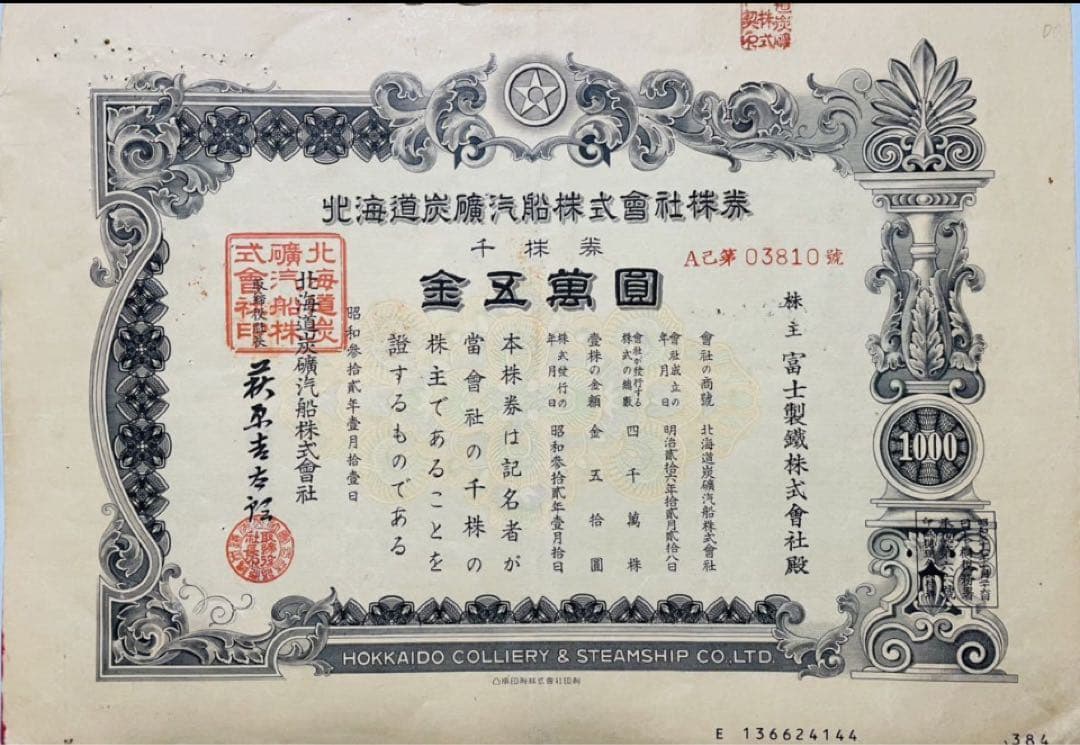 北海道炭礦汽船株式會社株券
千株券
金五萬圓
A己第 03810 號
株主 富士製鐵株式會社殿
會社の商號 北海道炭礦汽船株式會社
會社成立の年月日 明治貳拾六年拾貳月貳拾八日
會社が發行する株式の總數 四千萬株
壹株の金額 金五拾圓
株式發行の年月日 昭和參拾貳年壹月拾日
本株券は記名者が
當會社の千株の
株主であることを
證するものである
昭和參拾貳年壹月拾壹日
北海道炭礦汽船株式會社
取締役社長 萩原吉太郎
北海道炭
礦汽船株
式會社印
1000
HOKKAIDO COLLIERY & STEAMSHIP CO., LTD.
E 136624144
384